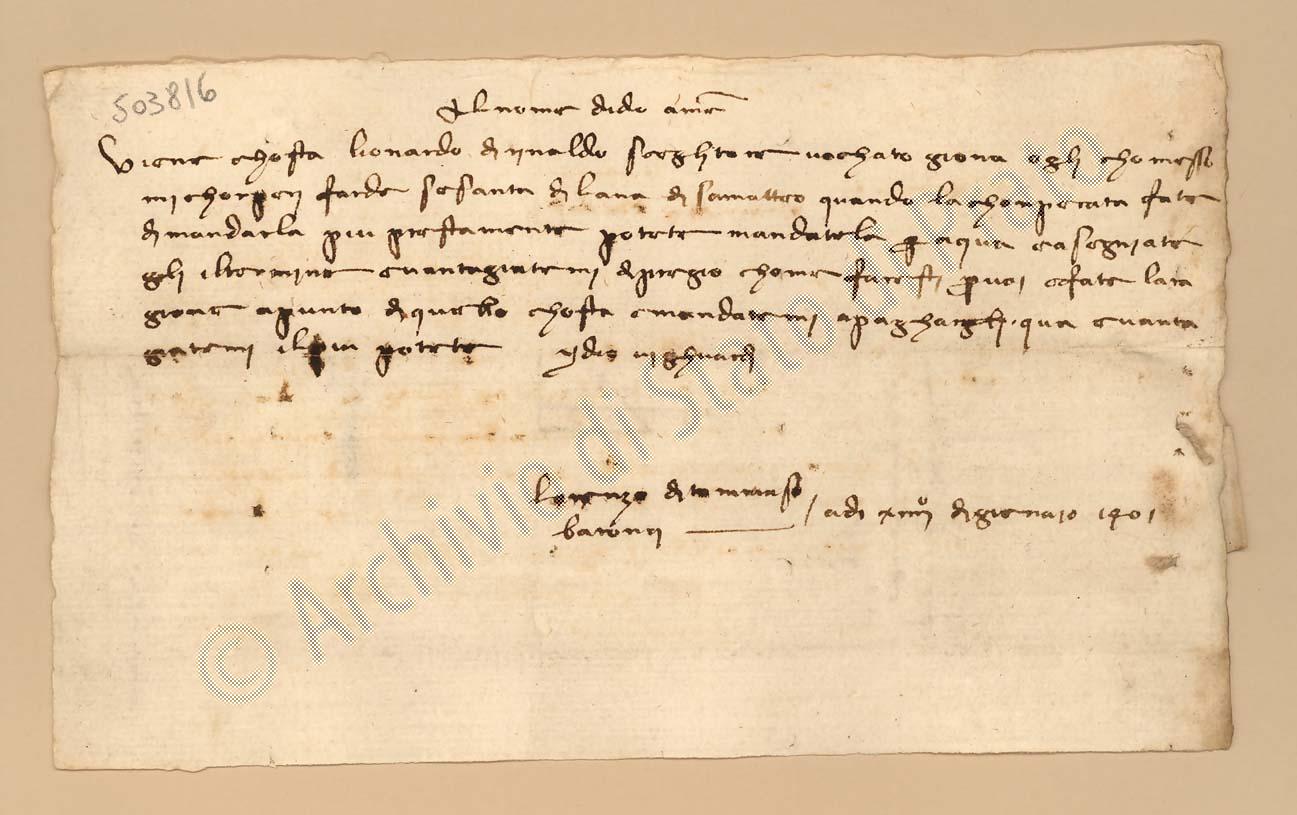 503816
Al nome di dio amẽ
Viene chosta lionardo di rinaldo sceglitore vochato giona ogli chomesso
mi chonperi farde sesanta di lana di samatteo quando lachonperata fate
di mandarla piu prestamente potete mandatela p aqua e asegniate
gli iltermine e vantagiatemi di pregio chome faresti p voi e fate lara
gione apunto di quello chosta e mandatemi apagharlj qua e vanta
giatemi il piu potete ydio vighuardi
lorenzo di tomaso
baronci / adi xiiii° di giennaio 1401
© Archivio di Stato di Prato